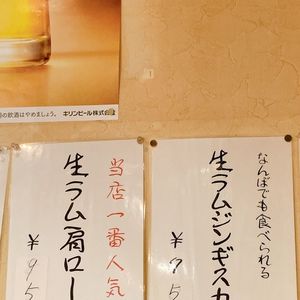 の飲酒はやめましょう。 キリンビール株式会社
なんばでも食べられる
生ラムジンギスカ
¥95
当店一番人気
生ラム肩ロー
¥95